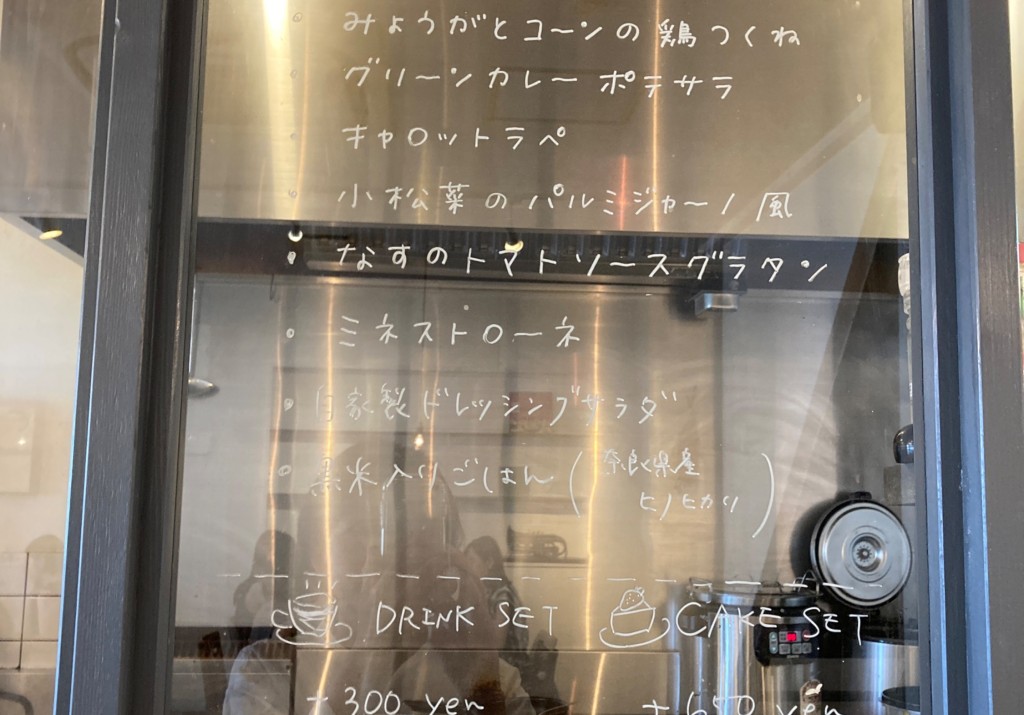 • みょうがとコーンの鶏つくね
• グリーンカレーポテサラ
• キャロットラペ
• 小松菜のパルミジャーノ風
• なすのトマトソースグラタン
• ミネストローネ
• 自家製ドレッシングサラダ
• 黒米入りごはん (奈良県産
ヒノヒカリ)
DRINK SET CAKE SET
+300 yen +650 yen